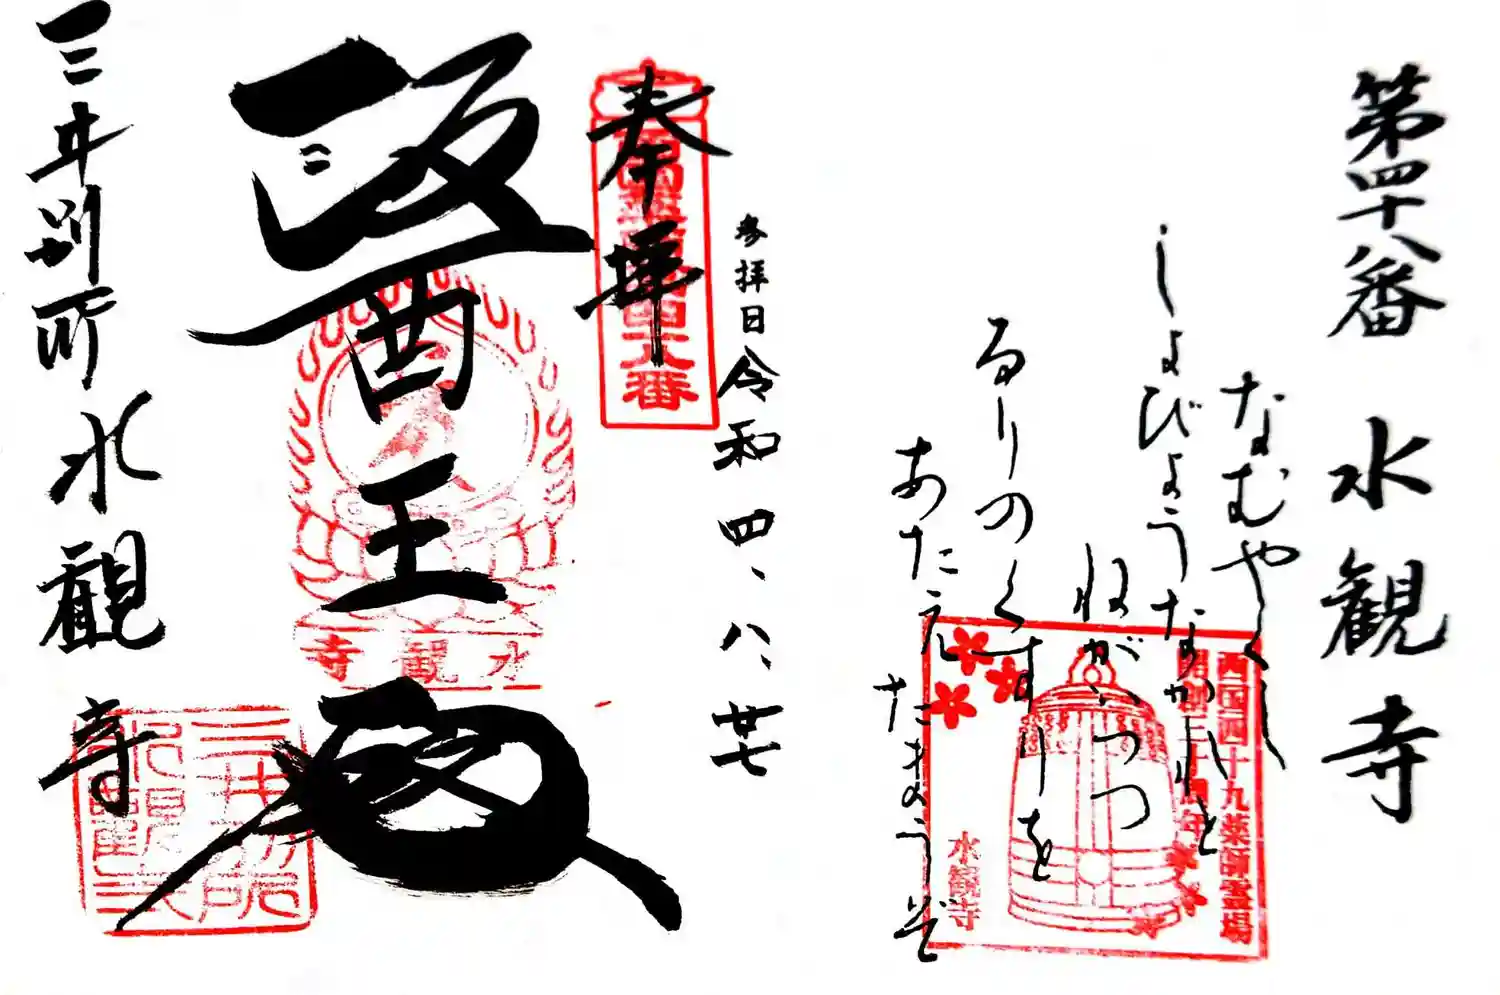 第四十八番 水観寺
なむやくし
しょびょうなかれと
ねがいつつ
るりのくすりを
あたえたまうぞ
西国四十九薬師霊場
開創三十周年
水観寺
参拝日令和四、八、廿七
奉拝
西国薬師第四十八番
醫王殿
水観寺
三井別所 水観寺